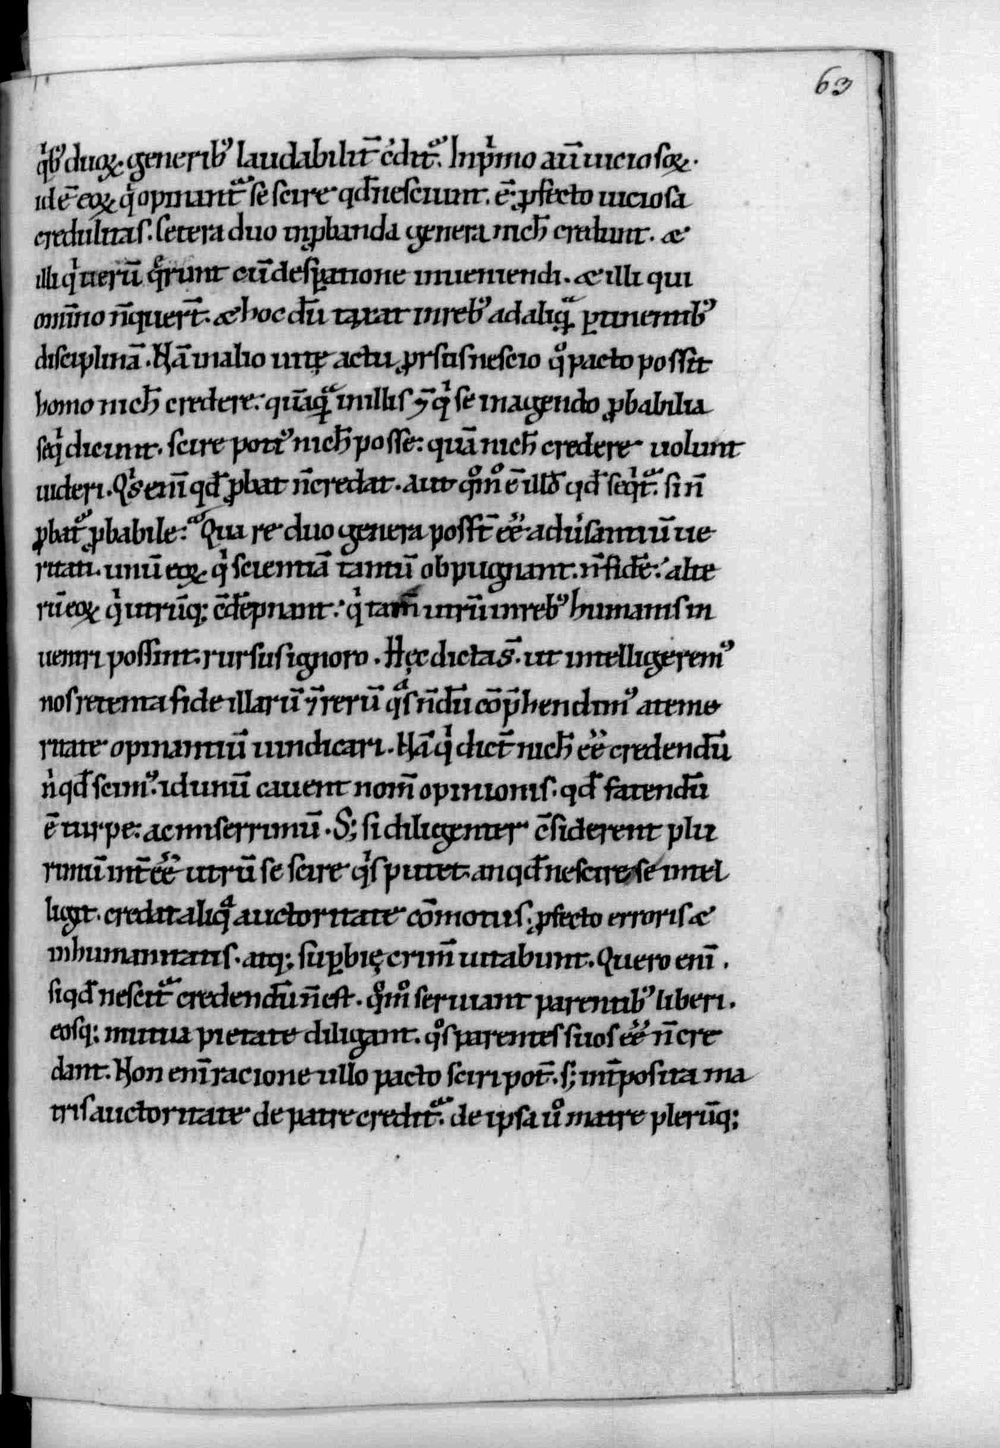 63
qͥbꝰ duoꝝ. generibꝰ laudabilit̄ c̄ditᷣ. Inpͥmo aūt uicioſoꝝ.
id ē eoꝝ qͥ opinantᷣ ſe ſcire qđ neſciunt. ē ꝓfecto uicioſa
credulitaſ. ſetera duo inꝓbanda genera nich̄ credunt. æ
illi qͥ uerū q̄runt cū deſꝑatione inueniendi. æ illi qui
omīno n̄ querūt. æ hoc dū taxat inrebꝰ ad aliqᷓ ꝑtinentibꝰ
diſciplinā. Nā in alio uitę actu ꝓrſuſ neſcio qͦ pacto poſſit
homo nich̄ credere. quāqᷓ inilliſ ⁊̄ qͥ ſe inagendo ꝓbabilia
ſeqͥ dicunt. ſcire potiꝰ nich̄ poſſe: quā nich̄ credere uolunt
uideri. Qͥs enī qđ ꝓbat n̄ credat. aut qͦmͦ ē illđ qđ ſeqͥtᷣ. ſi n̄
ꝓbatᷣ ꝓbabile: Qua re duo genera poſſt̄ eē̄ aduͥſantiū ue
ritati. unū eoꝝ qͥ ſcientiā tantū obpugnant. n̄ fidē: alte
rū eoꝝ qͥ utrūq; c̄dēpnant: qͥ tam̄ utrū inrebꝰ humaniſ in
ueniri poſſint. rurſuſ ignoro. Hęc dicta ſ̄. ut intelligeremꝰ
noſ retenta fide illarū ⁊̄ rerū qᷓſ n̄dū cōp̄hendimꝰ a teme
ritate opinantiū uindicari. Nā qͥ dict̄ nich̄ eē̄ credendū
nͥ qđ ſcimꝰ. id unū cauent nom̄ opinioniſ. qđ fatendū
ē turpe: ac miſerrimū. S; ſi diligenter c̄ſiderent plu
rimū int̄ eē̄ utrū ſe ſcire qͥſ putet. an qđ neſcire ſe intel
ligit. credat aliqᷓ auctoritate cōmotuſ; ꝓfecto erroriſ æ
inhumanitatiſ. atq; ſuꝑbię crim̄ uitabunt. Quero enī.
ſi qđ neſcitᷣ credendū n̄ eſt. qͦmͦ ſeruiant parentibꝰ liberi.
eoſq; mutua pietate diligant. qͦſ parenteſ ſuoſ eē̄ n̄ cre
dant. Non enī racione ullo pacto ſciri pot̄. ſ; int̄poſita ma
triſ auctoritate de patre creditᷣ. de ipſa uͦ matre plerūq;